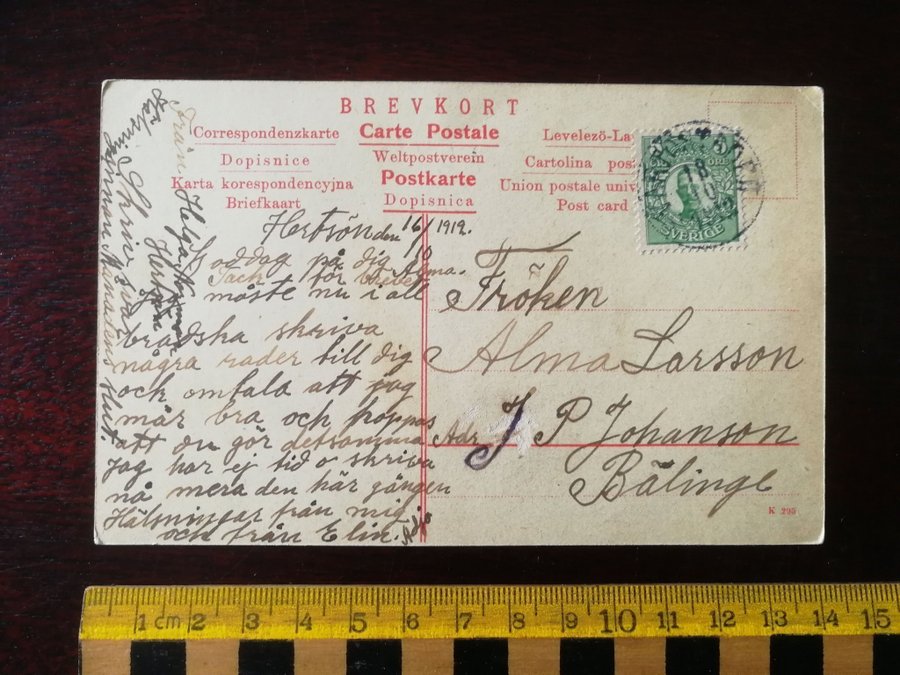 BREVKORT
Correspondenzkarte Carte Postale Levelező-La
Dopisnice Weltpostverein Cartolina pos
Karta korespondencyjna Postkarte Union postale univ
Briefkaart Dopisnica Post card
SVERIGE
Hertsön den 16/10 1912.
Goddag på dig Alma.
Tack för brevet
måste nu i all
bradska skriva
några rader till dig
ock omtala att jag
mår bra och hoppas
att du gör detsamma
Jag har ej tid o skriva
nå mera den här gången
Hälsningar från mig
och från Elin.
Från Helga
Hertsön
Skriv snar
Fröken
Alma Larsson
Adr. J P Johanson
Bälinge
K 295
1 cm 2 3 4 5 6 7 8 9 10 11 12 13 14 15